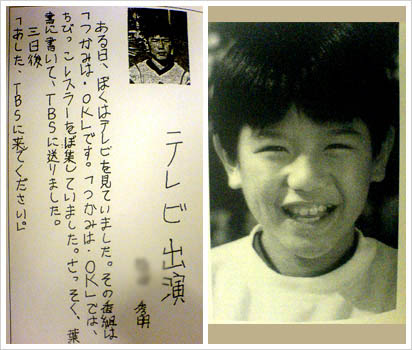 テレビ出演
秀明
ある日、ぼくはテレビを見ていました。その番組は
「つかみは・OK」です。「つかみは・OK」では、
ちびっこレスラーをぼ集していました。さっそく、葉
書に書いて、TBSに送りました。
三日後
「あした、TBSに来てください。」